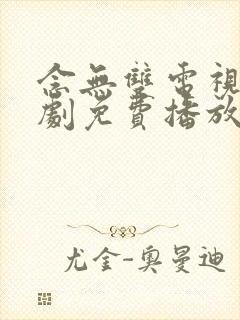 念無雙電視
劇免費播放
尤金-奧曼迪